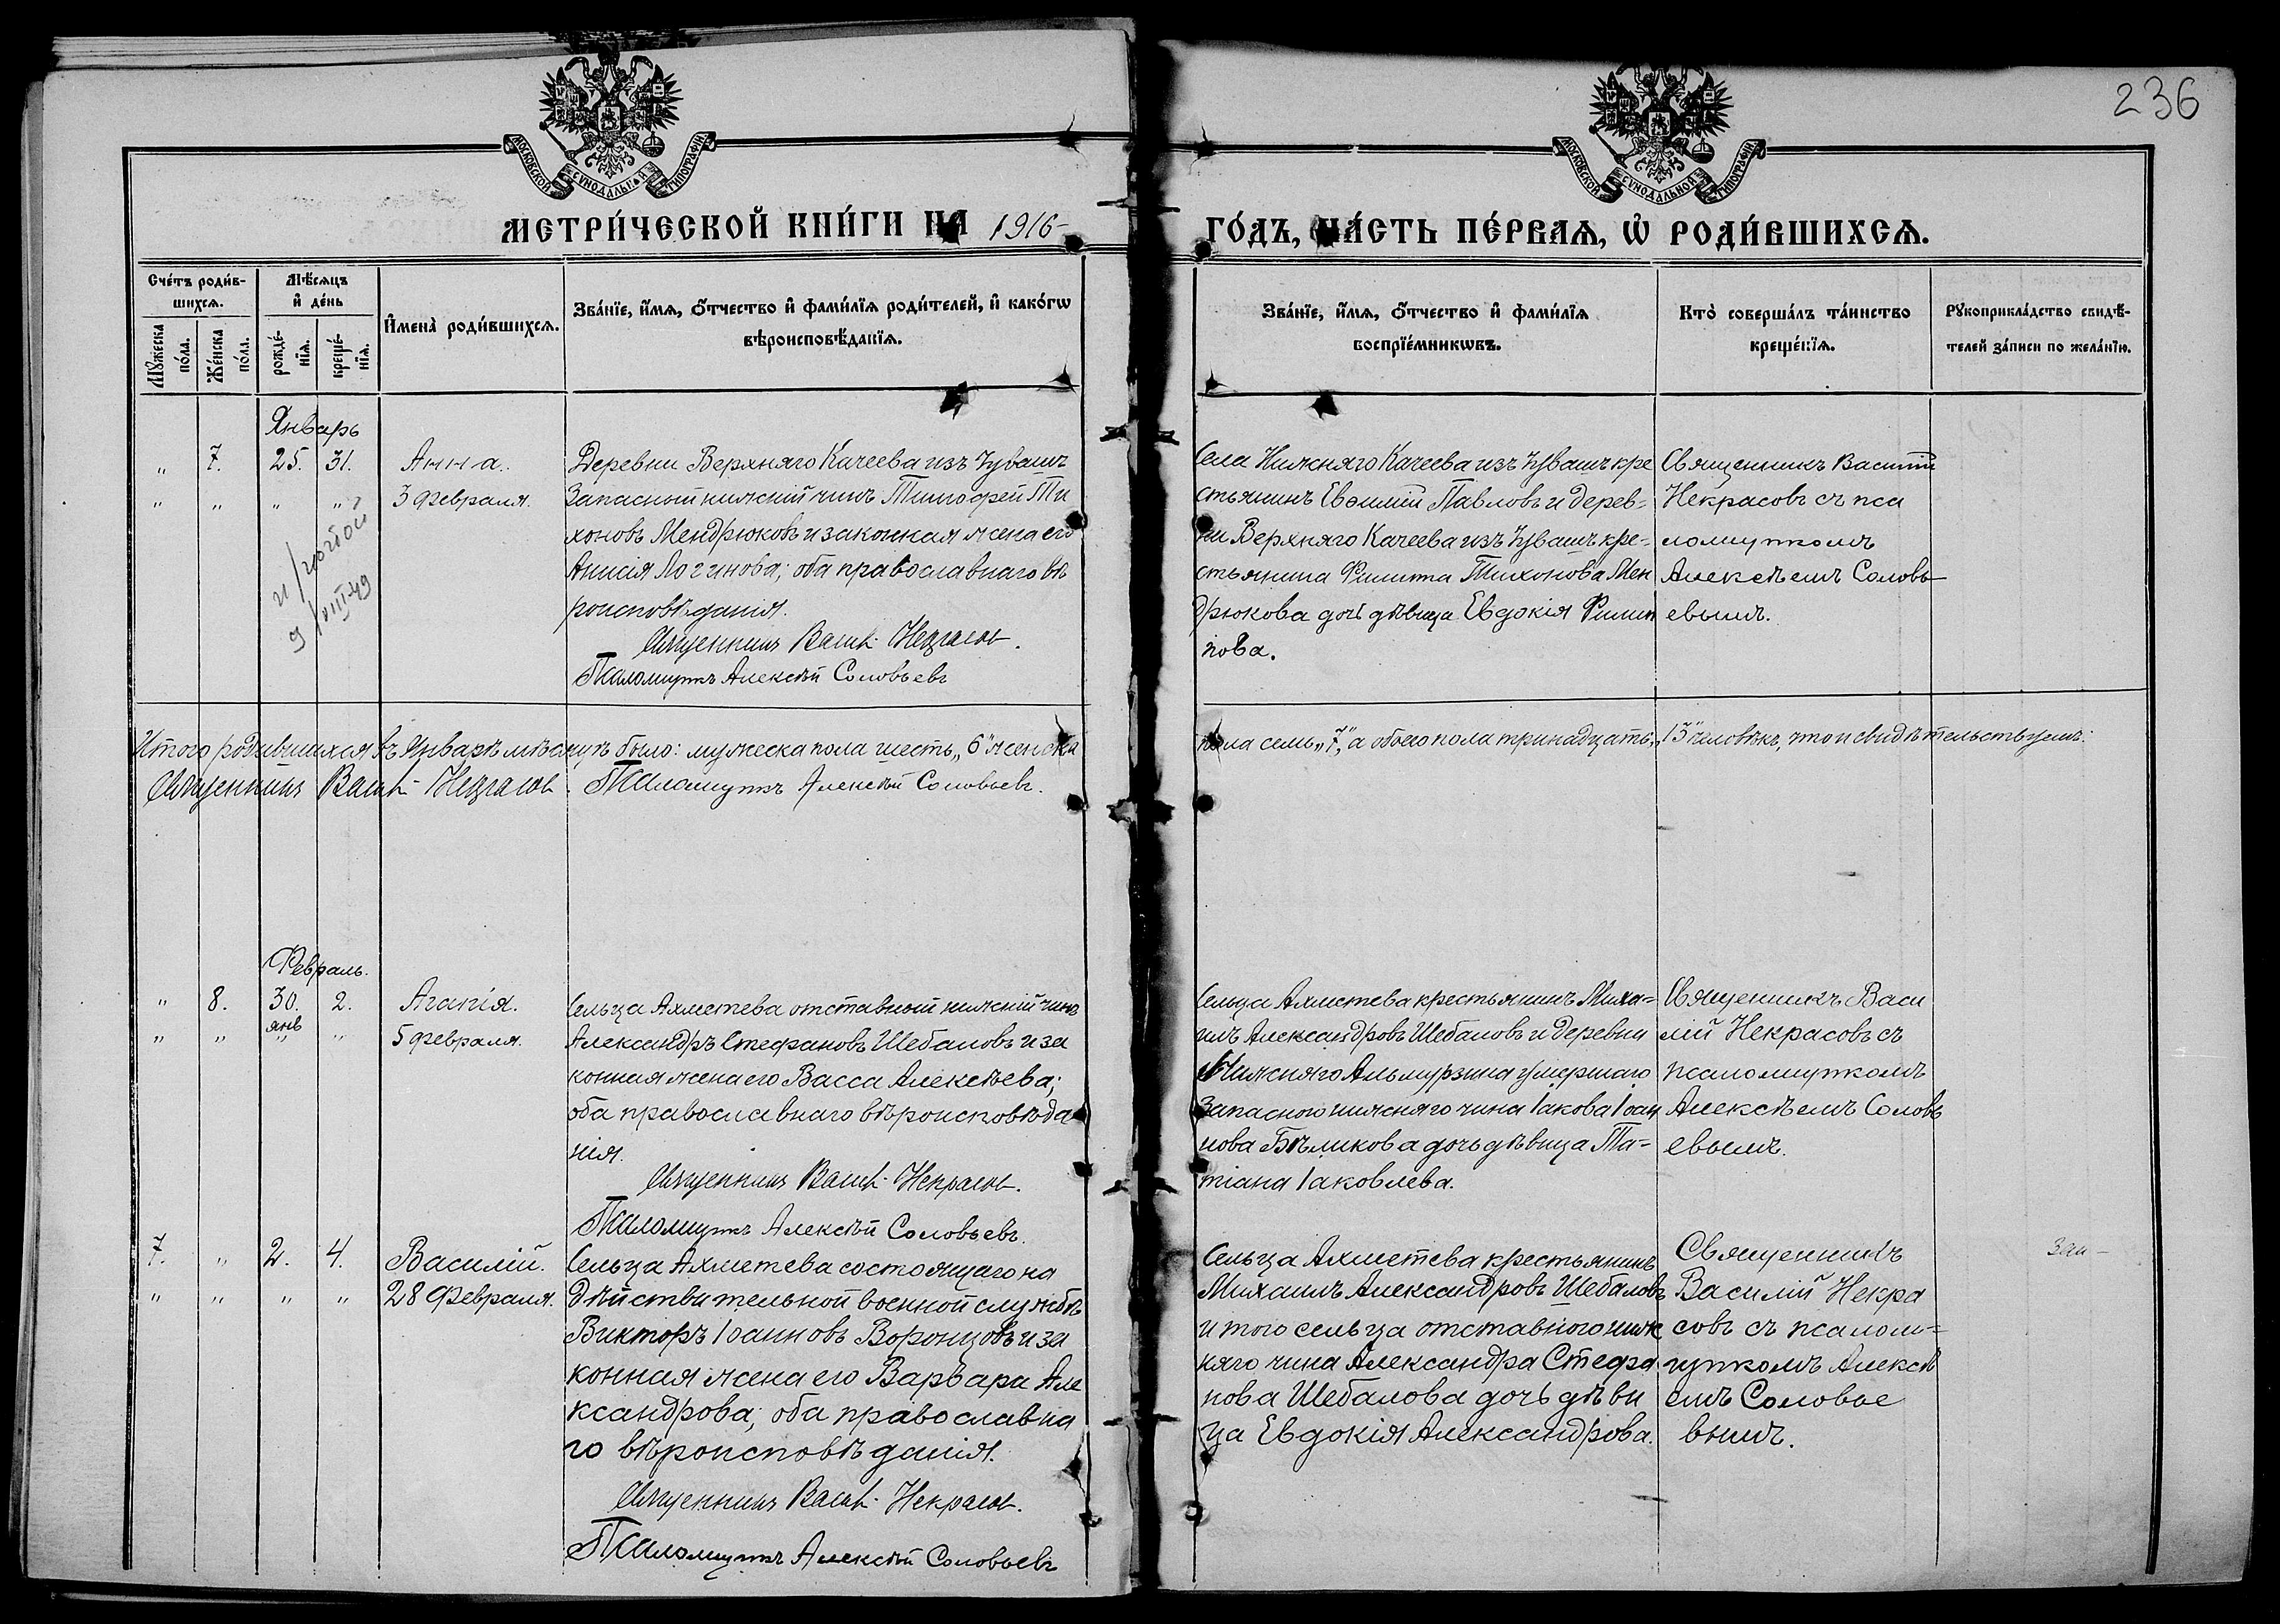 236
МОСКОВСКОЙ СѴНОДАЛЬНОЙ ТИПОГРАФІИ
МОСКОВСКОЙ СѴНОДАЛЬНОЙ ТИПОГРАФІИ
МЕТРИ́ЧЕСКОЙ КНИ́ГИ НА 1916-
ГО́ДЪ, ЧА́СТЬ ПЕ́РВАѦ, Ѡ РОДИ́ВШИХСѦ.
Сче́тъ роди́в-
шихсѧ.
Мꙋ́жеска
по́ла.
Же́нска
по́ла.
Мѣ́сѧцъ
и де́нь
рожде́-
нїѧ.
креще́-
нїѧ.
Имена̀ роди́вшихсѧ.
Зва́нїе, и́мѧ, о́тчество и фами́лїѧ роди́телей, и како́гѡ
вѣроисповѣ́данїѧ.
Зва́нїе, и́мѧ, о́тчество и фами́лїѧ
воспрїе́мникѡвъ.
Кто̀ соверша́лъ та́инство
креще́нїѧ.
Рꙋкоприкла́дство свидѣ́-
телей за́писи по жела́нїю.
Январь
„ 7. 25. 31. Анна.
„ „ „ „ 3 февраля.
9/VIII 49
Деревни Верхняго Качеева изъ Чувашъ
запасный нижній чинъ Тимофей Ти
хоновъ Мендрюковъ и законная жена его
Анисія Логинова; оба православнаго вѣ
роисповѣданія.
Священникъ Васил. Некрасовъ.
Псаломщикъ Алексѣй Соловьевъ
Села Нижняго Качеева изъ Чувашъ кре
стьянинъ Евѳимій Павловъ и дерев-
ни Верхняго Качеева изъ Чувашъ кре-
стьянина Филиппа Тихонова Мен
дрюкова дочь дѣвица Евдокія Филип
пова.
Священникъ Василій
Некрасовъ съ пса
ломщикомъ
Алексѣемъ Соловь
евымъ.
Итого родившихся въ Январѣ мѣсяцѣ было: мужеска пола шесть „6“ женска
пола семь „7“, а обоего пола тринадцать „13“ человѣкъ, что и свидѣтельствуемъ:
Священникъ Васил. Некрасовъ. Псаломщикъ Алексѣй Соловьевъ.
Февраль.
„ 8. 30. 2. Агапія.
янв
„ „ „ „ 5 февраля.
Сельца Ахметева отставной нижній чинъ
Александръ Стефановъ Шебаловъ и за
конная жена его Васса Алексѣева;
оба православнаго вѣроисповѣда
нія.
Священникъ Васил. Некрасовъ.
Псаломщикъ Алексѣй Соловьевъ.
Сельца Ахметева крестьянинъ Миха-
илъ Александровъ Шебаловъ и деревни
Нижняго Альмурзина умершаго
запасного нижняго чина Іакова Іоан
нова Бѣликова дочь дѣвица Та-
тіана Іаковлева.
Священникъ Васи
лій Некрасовъ съ
псаломщикомъ
Алексѣемъ Соловь
евымъ.
7. „ 2. 4. Василій.
„ „ „ „ 28 февраля.
Сельца Ахметева состоящаго на
дѣйствительной военной службѣ
Викторъ Іоанновъ Воронцовъ и за
конная жена его Варвара Але
ксандрова; оба православна
го вѣроисповѣданія.
Священникъ Васил. Некрасовъ.
Псаломщикъ Алексѣй Соловьевъ
Сельца Ахметева крестьянинъ
Михаилъ Александровъ Шебаловъ
и того сельца отставного ниж
няго чина Александра Стефа
нова Шебалова дочь дѣви
ца Евдокія Александрова.
Священникъ
Василій Некра
совъ съ псалом-
щикомъ Алексѣ
емъ Соловье
вымъ.